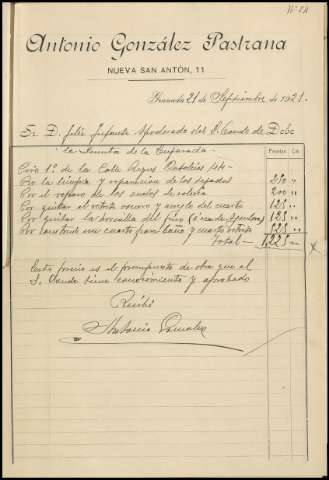 Nº 24
Antonio González Pastrana
NUEVA SAN ANTÓN, 11
Granada 21 de Septiembre de 1921.
Sr. D. Felix Infante Apoderado del S. Conde de
la
Pesetas Cts.
Casa 1ª de la Calle Reyes Catolicos
Por la limpia y reparacion de los tejados 250 "
Por el reparo de los suelos de soleria 200 "
Por quitar el retrete oscuro y arreglo del cuarto 125 "
Por quitar la hornilla del piso 125 "
Por construir un cuarto para baño y cuarto retrete 525 "
Total — 1225 "
Este precio es el presupuesto de obra que el
S. Conde tiene conocimiento y aprobado
Recibí
Antonio Gonzalez